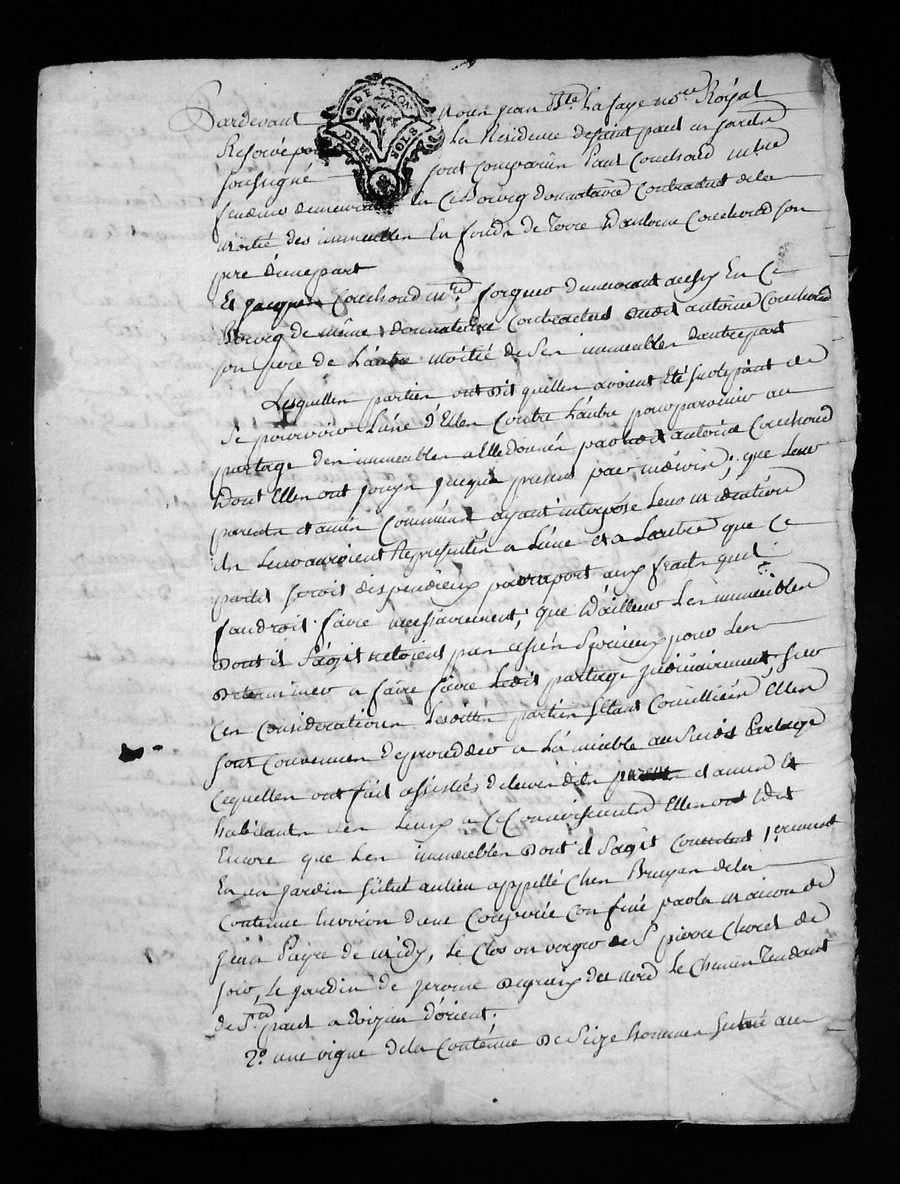 G DE LYON
DEUX SOLS
Pardevant Nous jean Bte Lafaye nore Royal
Reservé po la Residence desaint paul en jarets
soussigné sont comparûs Paul Couchoud mtre
demeura en Ce Bourg donnataire Contractuel dela
moitié des immeubles En fonds de Terre d'antoine Couchoud son
pere d'unepart
Et jacques Couchoud mtre forgeur demeurant aussy En Ce
Bourg de même donnataire Contractuel dudit antoine Couchoud
son pere de L'autre moitié de ses immeubles dautrepart
Lesquelles parties ont dit quelles avoient été sur le point de
Se pourvoir L'une d'Elles Contre L'autre pour parvenir au
partage des immeubles a Elle donnés par ledit antoine Couchoud
dont Elles ont jouys jusqua present par indivis; que Leur
parents et amis Communs ayant interposé Leur médiation
ils Leur auroient Representés a L'une et a L'autre que Ce
partit seroit dispendieux par raport aux fraits quil
faudroit faire necessairement; que d'ailleurs Les immeubles
dont il S'agit netoient pas assés Serieux pour Les
determiner a faire faire Ledit partage judiciairement, sur
Ces Considerations Lesdittes parties Setant Conseillées Elles
sont Convenues de proceder a L'amiable au Susdit Partage
Cequelles ont fait assistés de leurs dits parents et amis Et
habitants des Lieux a Ce Connoissants Elles ont dit
Encore que Les immeubles dont il S'agit Consistent 1° ement
En un jardin situé aulieu appellé Chez Bruyas dela
Contenue Environ d'une Couppée Confiné par la maison de
jean Payre de midy, le Clos ou verger de Sr pierre Chorel de
soir, le jardin de jerome Degraix de nord le Chemin Tendant
de St paul a d'orient.
2° une vigne dela Contenue de Seize hommes Située au